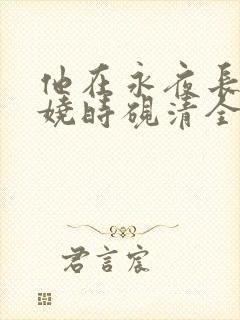 他在永夜長
嬈時硯清全
君言宸